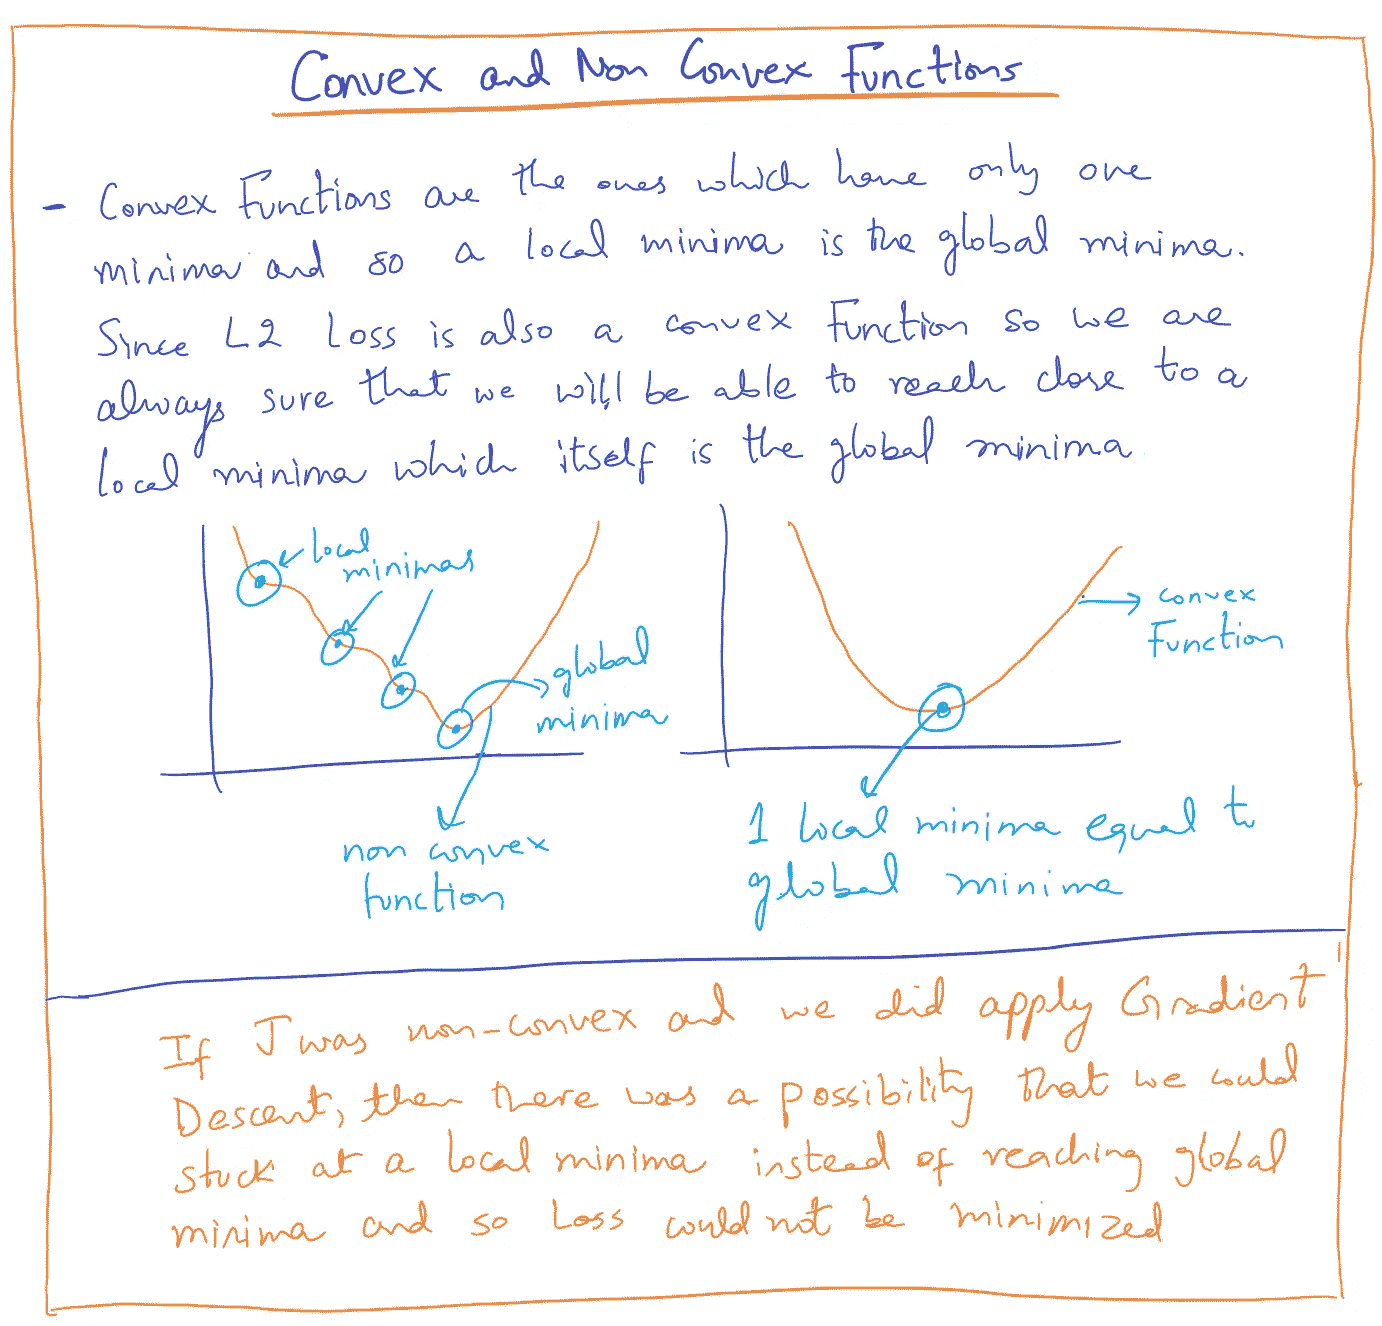 Convex and Non Convex Functions
- Convex Functions are the ones which have only one
minima and so a local minima is the global minima.
Since L2 Loss is also a convex Function so we are
always sure that we will be able to reach close to a
local minima which itself is the global minima
local
minimas
global
minima
non convex
function
convex
Function
1 local minima equal to
global minima
If J was non-convex and we did apply Gradient
Descent, then there was a possibility that we could
stuck at a local minima instead of reaching global
minima and so Loss could not be minimized